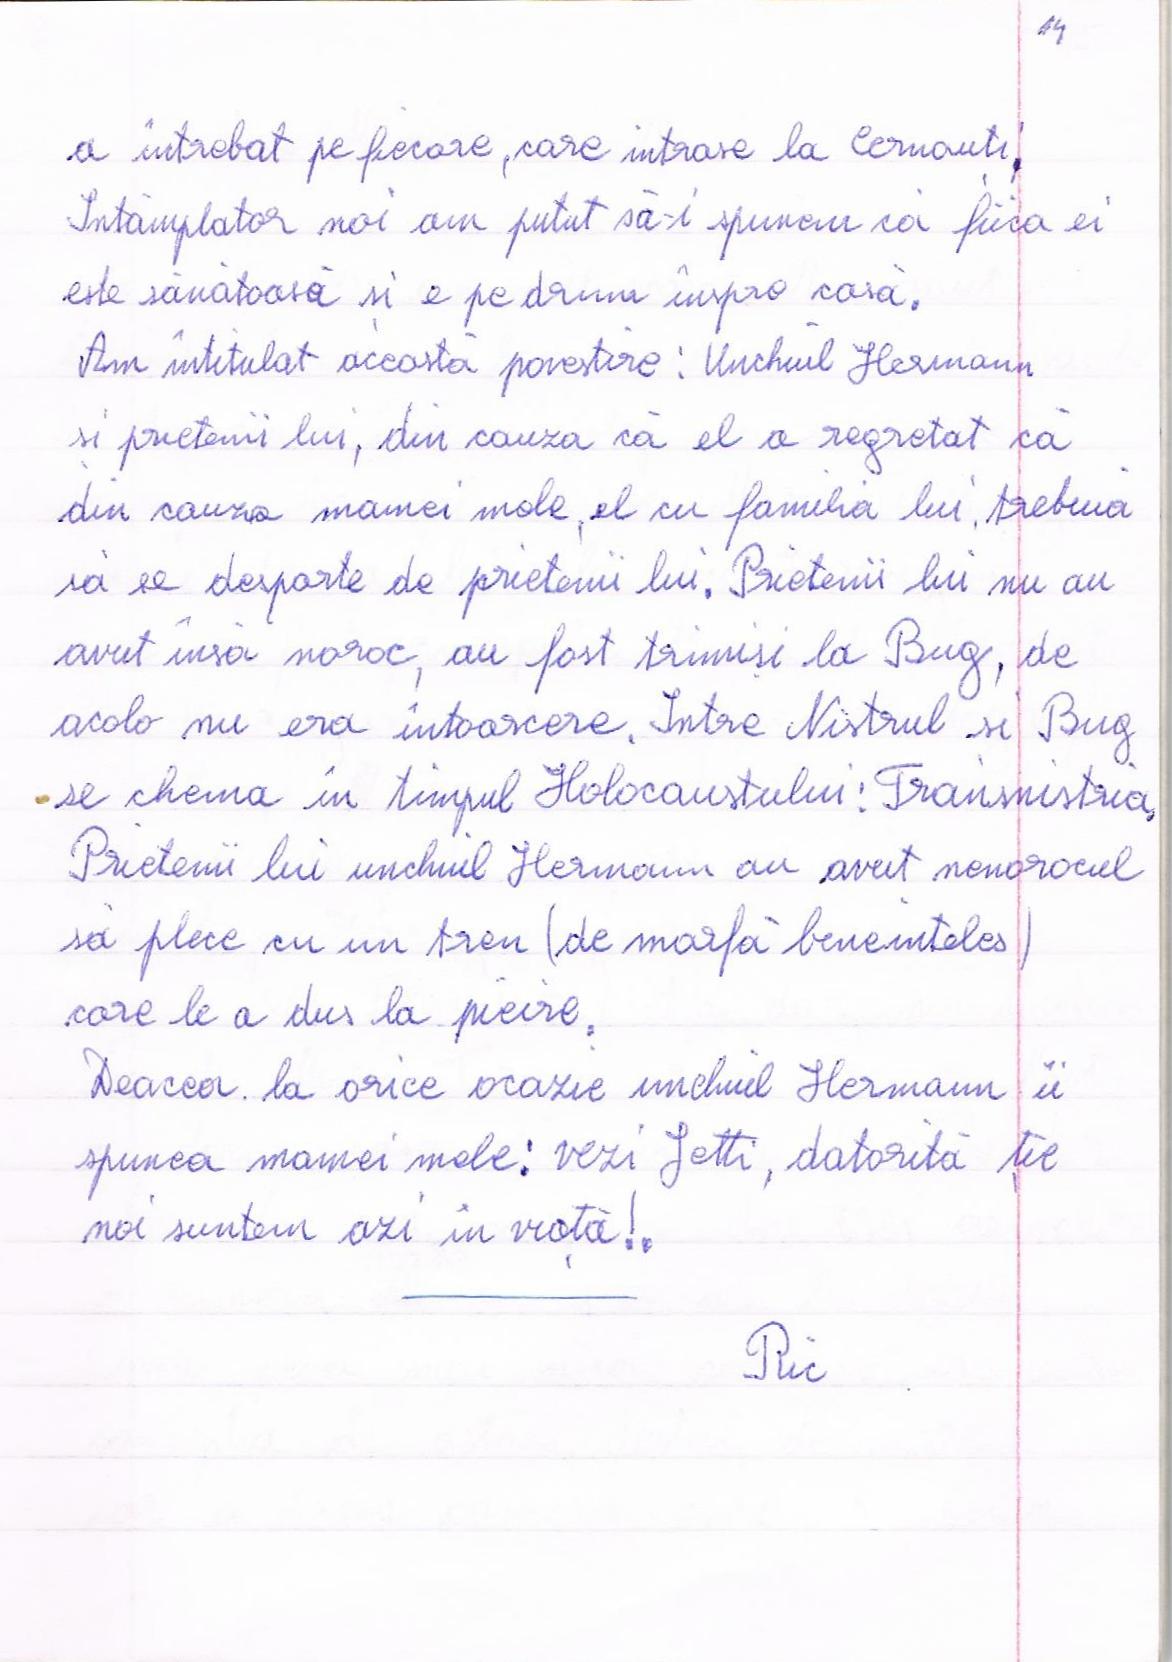 14
a întrebat pe fiecare, care intrase la Cernauti!
Intâmplator noi am putut să-i spunem că fiica ei
este sănătoasă si e pe drum înspre casă.
Am întitulat această povestire: Unchiul Hermann
si prietenii lui, din cauza că el a regretat că
din cauza mamei mele, el cu familia lui, trebuia
să se desparte de prietenii lui. Prietenii lui nu au
avut însă noroc, au fost trimiși la Bug, de
acolo nu era intoarcere. Intre Nistrul si Bug
se chema în timpul Holocaustului: Transnistria.
Prietenii lui unchiul Hermann au avut nenorocul
să plece cu un tren (de marfă beneinteles)
care le a dus la pieire.
Deaceea la orice ocazie unchiul Hermann îi
spunea mamei mele: vezi Jetti, datorită ție
noi suntem azi în viață!.
Ric